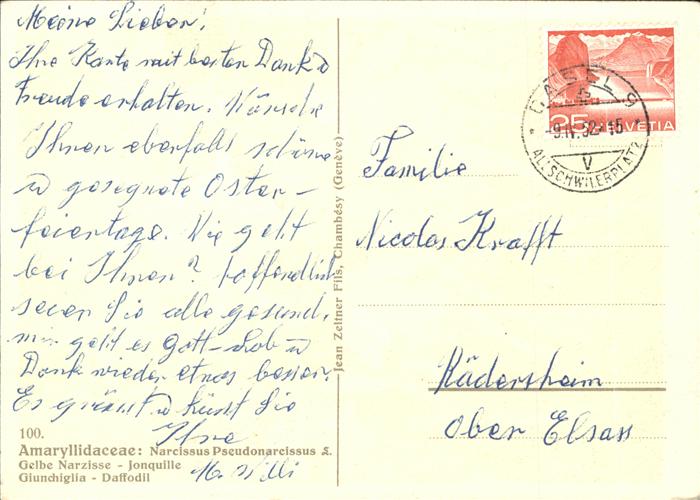 Meine Lieben!
Ihre Karte mit besten Dank u
Freude erhalten. Wünsche
Ihnen ebenfalls schöne
u gesegnete Oster-
feiertage. Wie geht
bei Ihnen? Hoffendlich
seien Sie alle gesund,
mir geht es Gott-Lob u
Dank wieder etwas besser.
Es grüsst u küsst Sie
Ihre
M. Willi
100.
Amaryllidaceae: Narcissus Pseudonarcissus L.
Gelbe Narzisse - Jonquille
Giunchiglia - Daffodil
Jean Zeltner Fils, Chambésy (Genève)
BASEL 9
-9.IV.52-15
V
ALLSCHWILERPLATZ
25 HELVETIA
Familie
Nicolas Krafft
Rädersheim
Ober Elsass